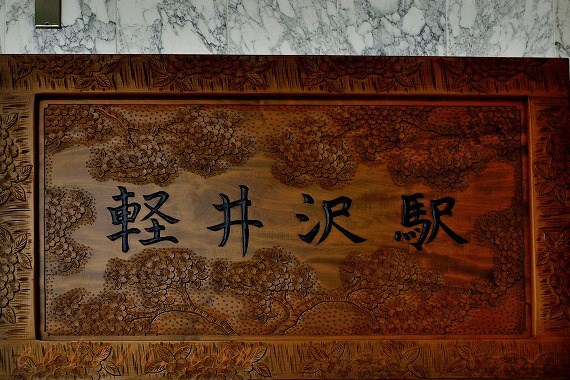 軽井沢駅